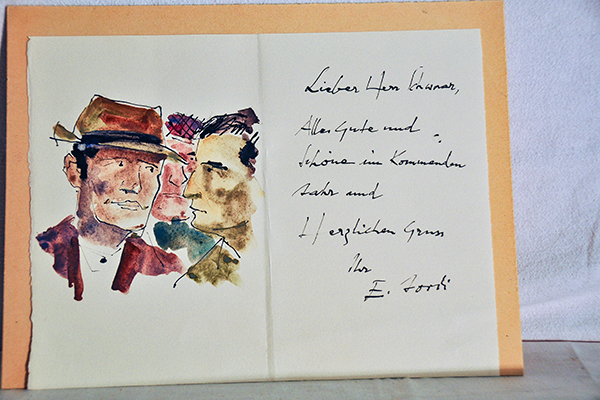 Lieber Herr
Alles Gute und
Schöne im Kommenden
Jahr und
Herzlichen Gruss
Ihr
E. Jordi